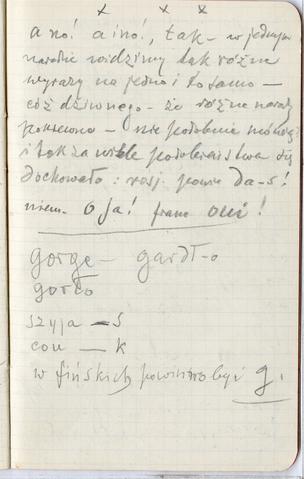 x x x
a no! a ino!, tak – w jednym
narodzie widzimy tak różne
wyrazy na jedno i to samo –
cóż dziwnego – że różne narody
– nie podobnie mówią
i tak za wiele podobieństwa się
dochowało: rosj. powie Da-s!
niem. O ja! franc Oui!
gorge – gardł-o
gorło
szyja – s
cou — k
w fińskich powinno być g.